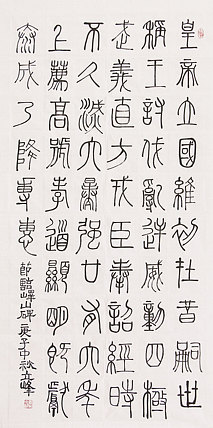 皇帝立國維初在昔嗣世
稱王討伐亂逆威動四極
武義直方戎臣奉詔經時
不久滅六暴強廿有六年
上薦高號孝道顯明既獻
泰成乃降専惠
節臨嶧山碑庚子中秋峰